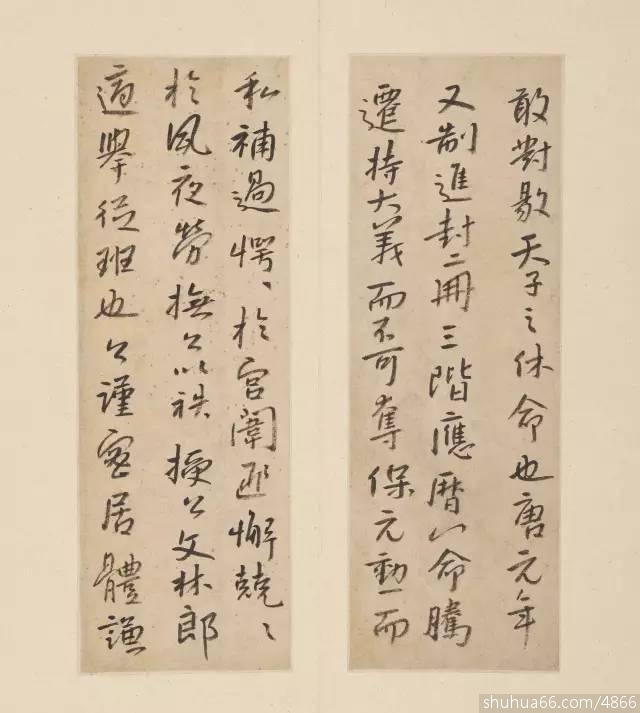 敢對敭天子之休命也唐元年
又制進封二冊三階應曆以命騰
遷持大義而不可奪保元勳而
私補過愕〻於宮闈匪懈兢〻
於夙夜勞撫公以秩授公文林郎
適舉從班也公謹密居體謙
shuhua66.com/4866